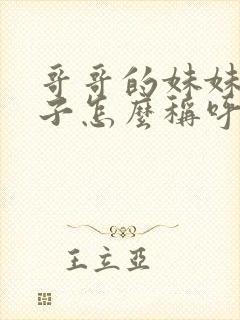 哥哥的妹妹
子怎麼稱呼
王立亞